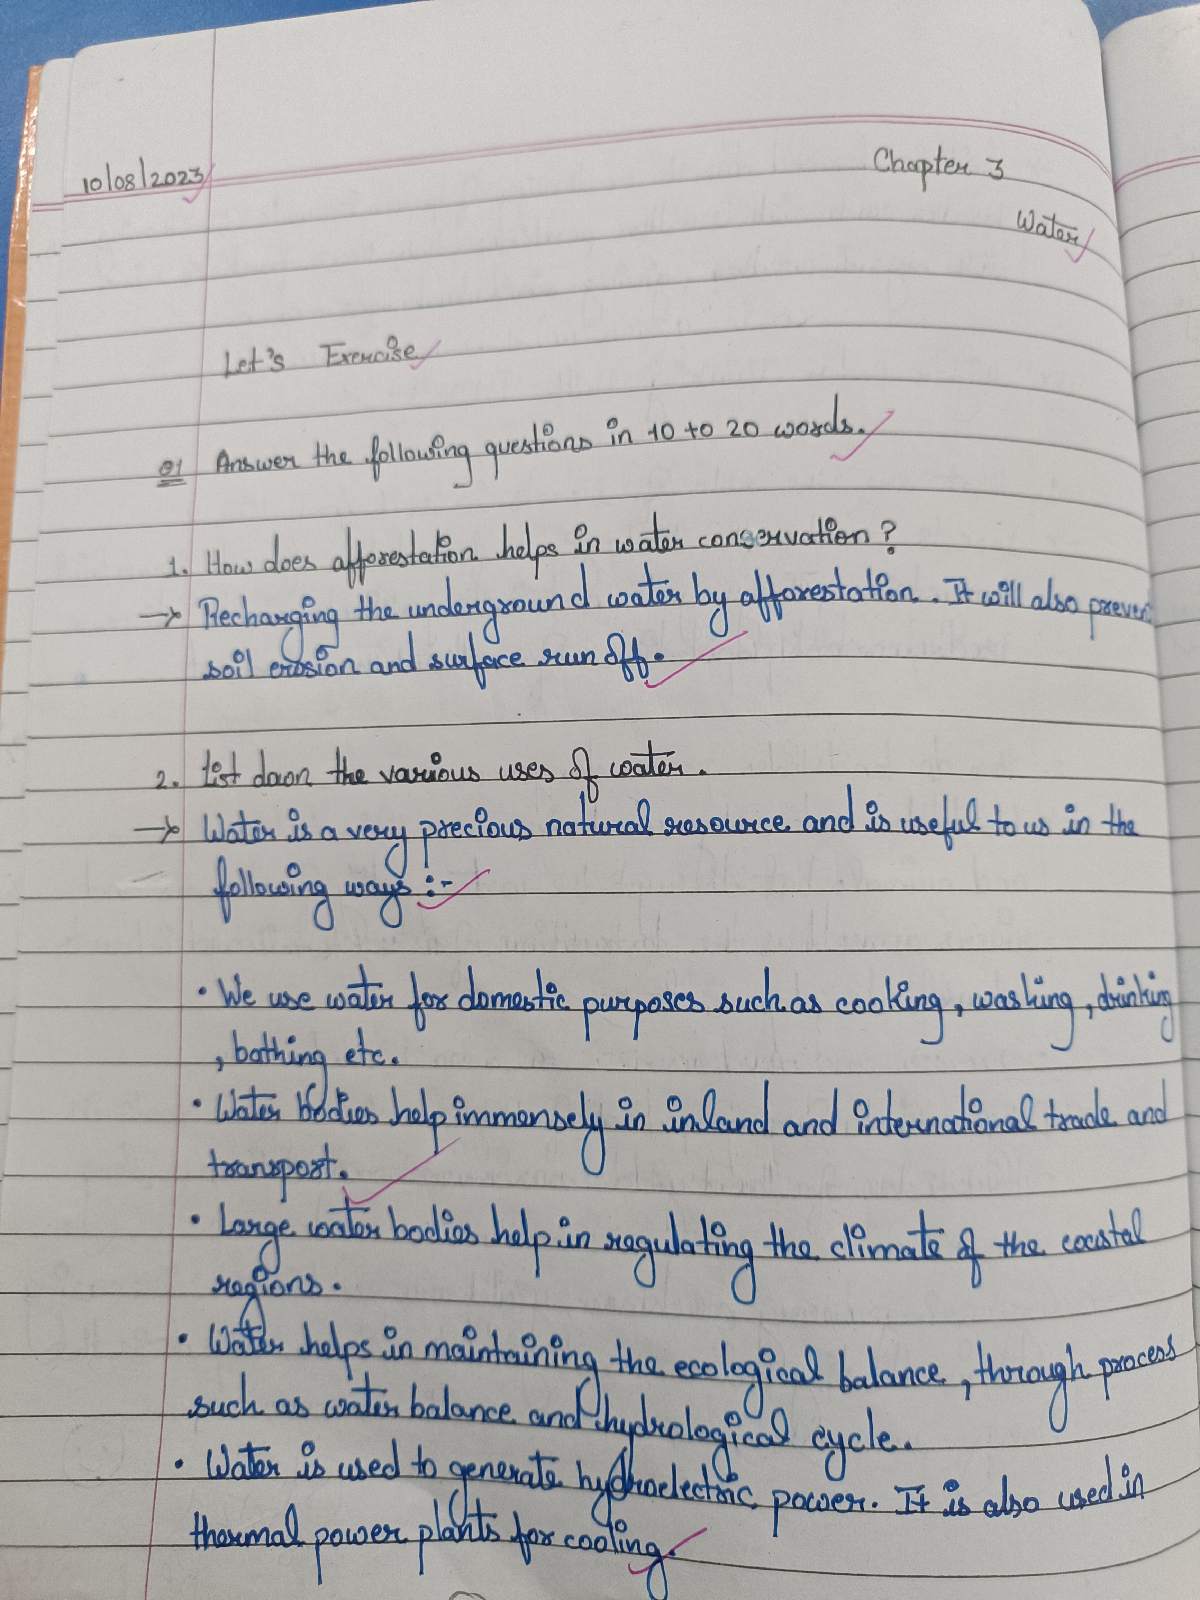 10/08/2023
Chapter 3
Water
Let's Exercise
Q1 Answer the following questions in 10 to 20 words.
1. How does afforestation helps in water conservation?
→ Recharging the underground water by afforestation. It will also preven
soil erosion and surface run off.
2. List down the various uses of water.
→ Water is a very precious natural resource and is useful to us in the
following ways :-
• We use water for domestic purposes such as cooking, washing, drinking
, bathing etc.
• Water bodies help immensely in inland and international trade and
transport.
• Large water bodies help in regulating the climate of the coastal
regions.
• Water helps in maintaining the ecological balance, through process
such as water balance and hydrological cycle.
• Water is used to generate hydroelectric power. It is also used in
thermal power plants for cooling.